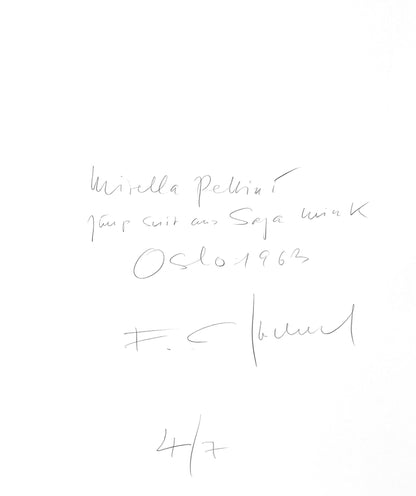 Mirella Pettini
jump suit aus Saga mink
Oslo 1963
F. C. Gundlach
4/7